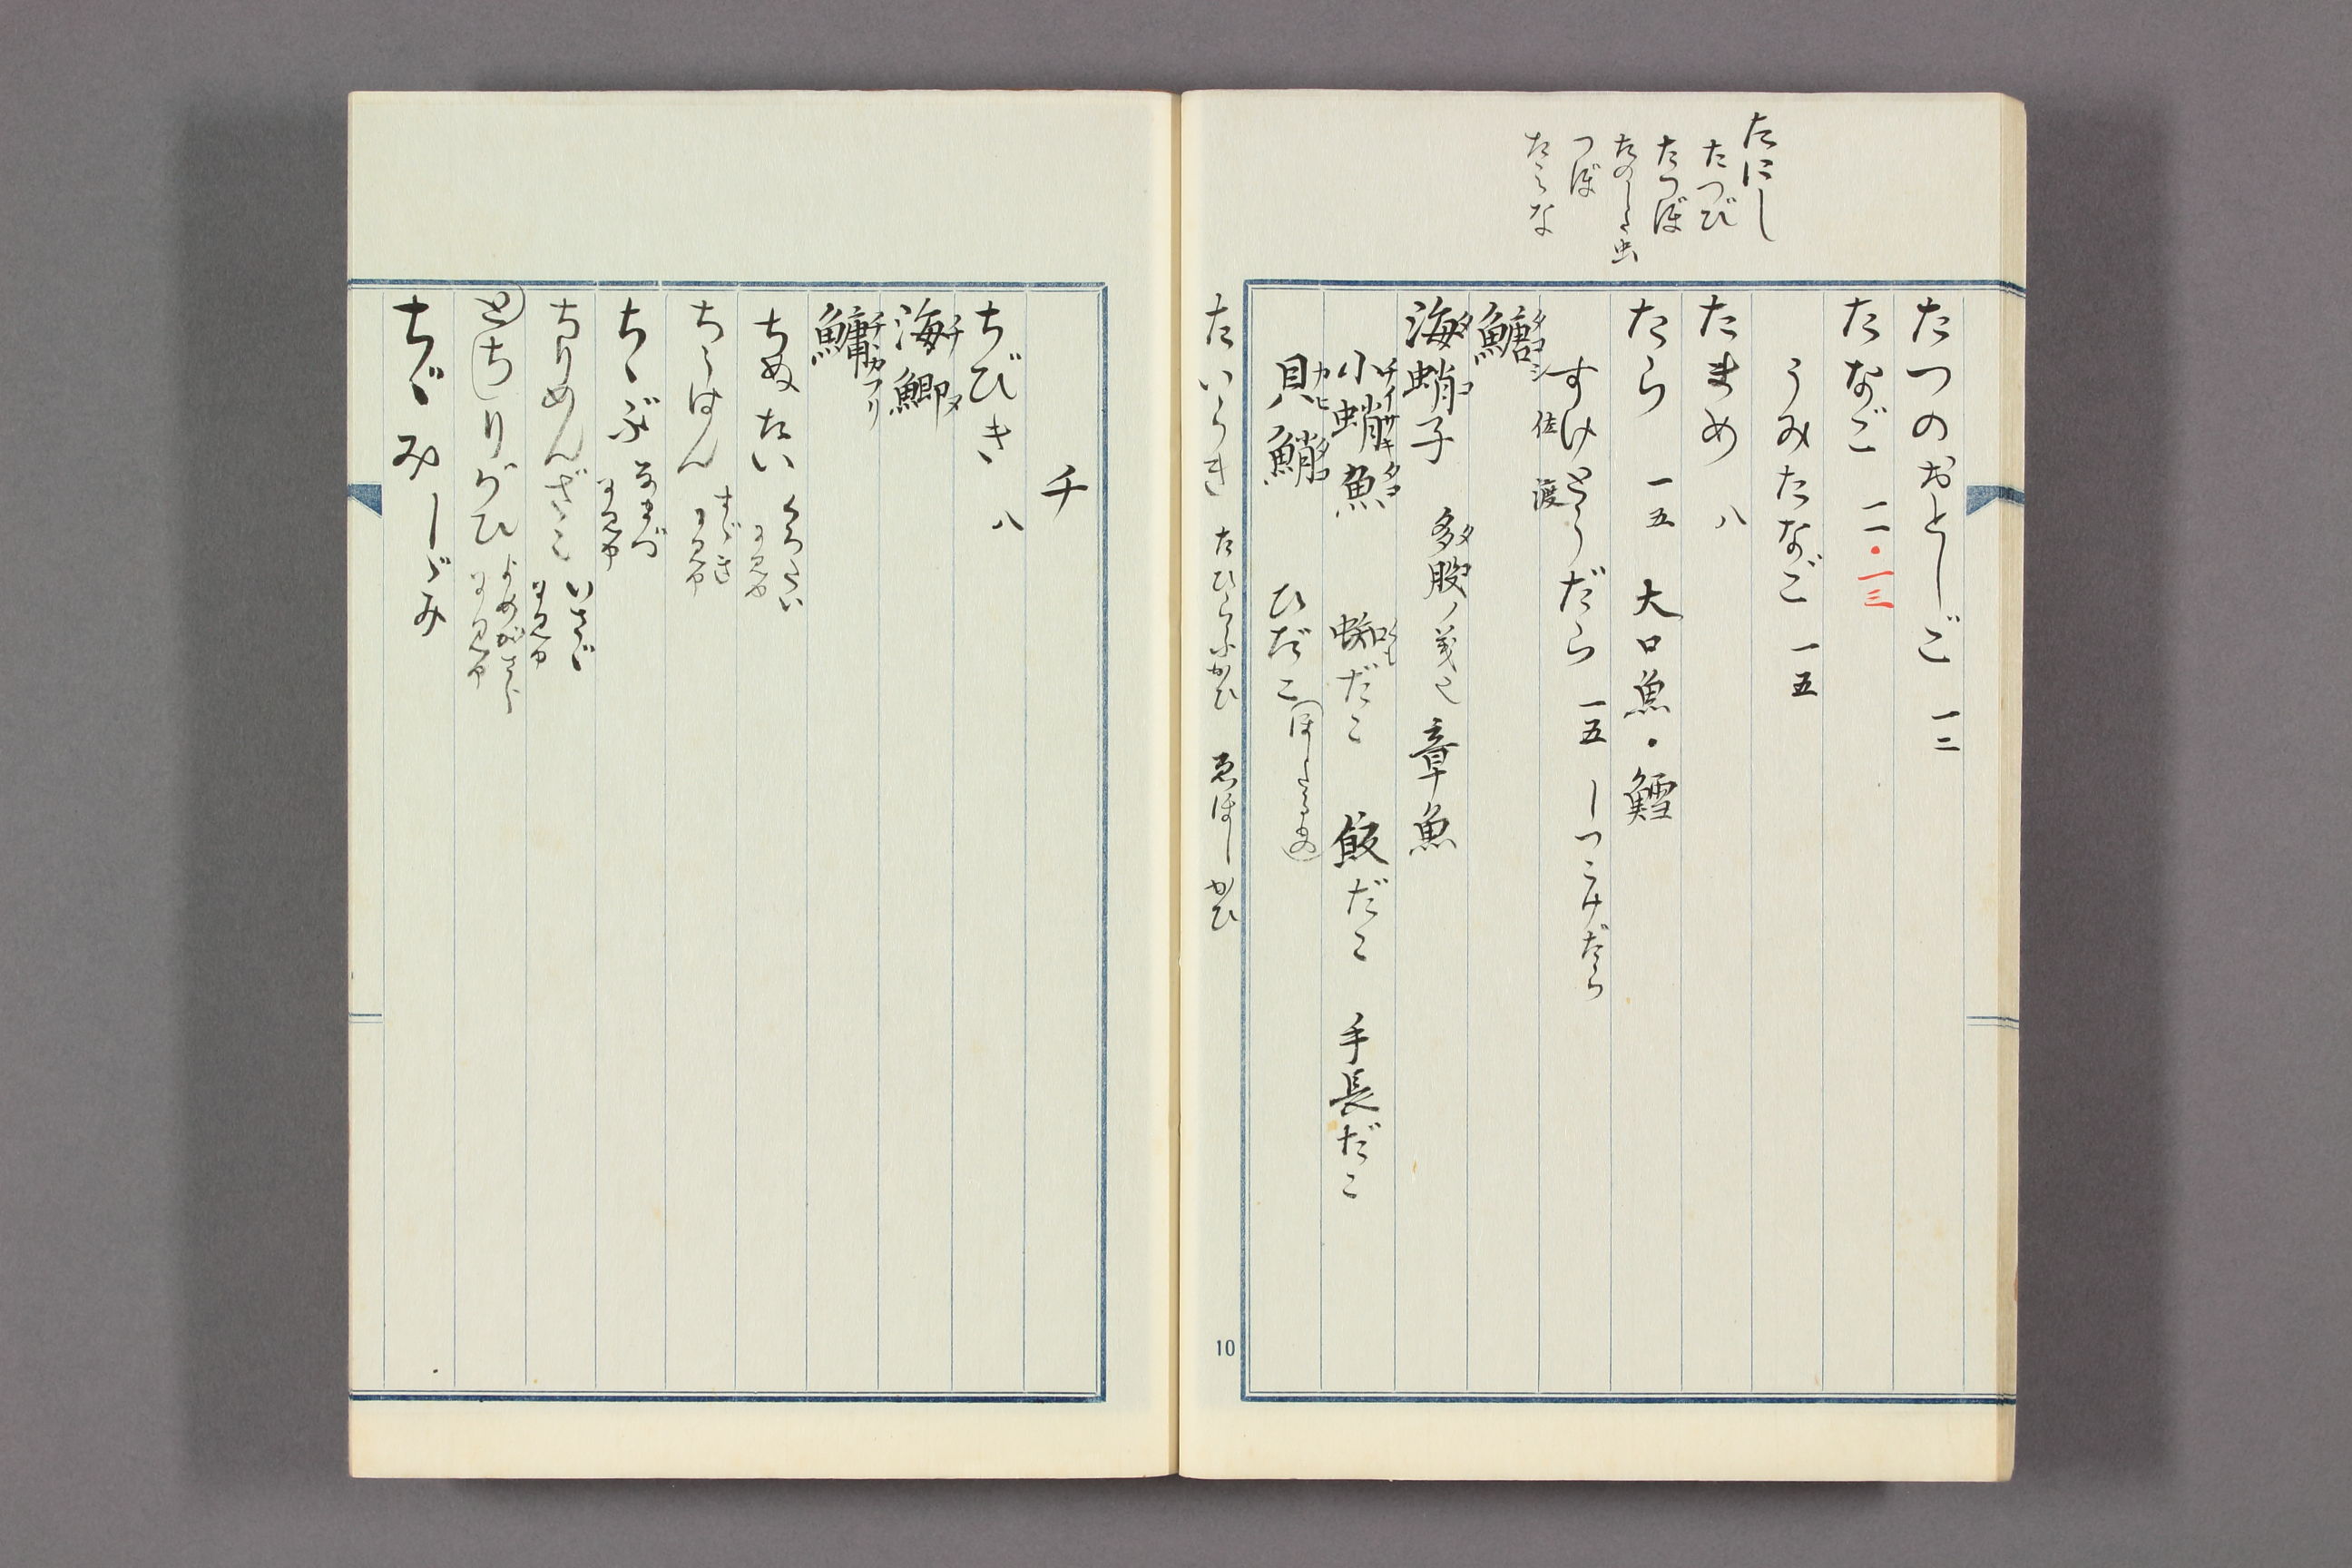 たにし
たつび
たつぼ
たのした虫
つぼ
たらな
たつのおとしご 一二
たなご 一二・一三
うみたなご 一五
たまめ 八
たら 一五 大口魚・鱈
すけとうだら 一五 しつこけだら
佐渡
鱅 タコシ
海蛸子 タコ 多股ノ義也 章魚
小蛸魚 チイサキタコ 蜘だこ 飯だこ 手長だこ
貝鮹 カヒタコ ひだこ
たいらき たひらふかひ ゑぼしかひ
10
チ
ちびき 八
海鯽 チヌ
鱅 チカフリ
ちぬたい くろたい
ちゝぶ
ちりめんざこ いさゞ
とちりがひ よめがさら
ちゞみしゞみ